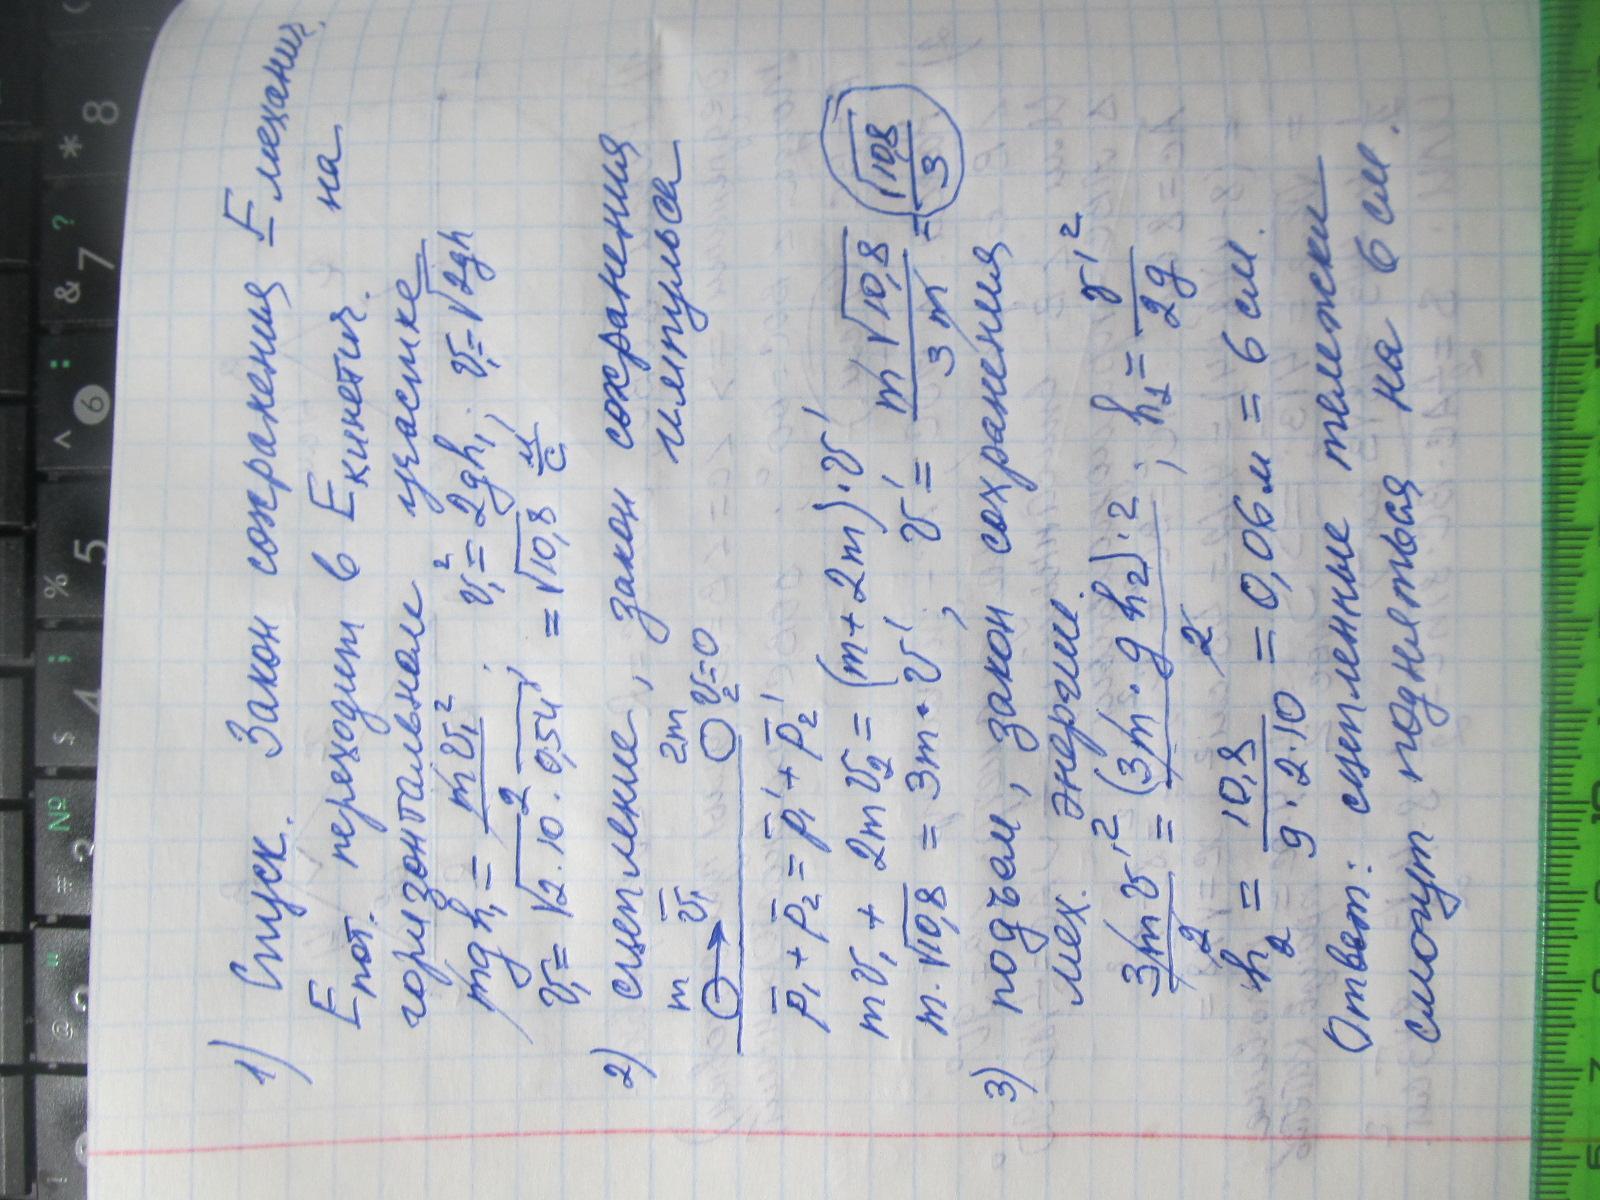 1) Спуск. Закон сохранения E механич.
Eпот. переходит в Eкинетич. на
горизонтальном участке
mgh₁ = mv₁²/2; v₁² = 2gh₁; v₁ = √2gh
v₁ = √2·10·0,54 = √10,8 м/с
2) сцепление, закон сохранения
импульса
m v̄₁ 2m v₂=0
p̄₁ + p̄₂ = p̄₁' + p̄₂'
mv₁ + 2mv₂ = (m + 2m)·v'
m·√10,8 = 3m·v'; v' = m√10,8/3m = √10,8/3
3) подъем, закон сохранения
мех. энергии.
3mv'²/2 = (3m·gh₂)·2/2; h₂ = v'²/2g
h₂ = 10,8/9·2·10 = 0,06м = 6 см.
Ответ: сцепленные тележки
смогут подняться на 6 см.
! @ 2 " = № $ 4 ; % 5 ^ 6 : & 7 ? * 8 (